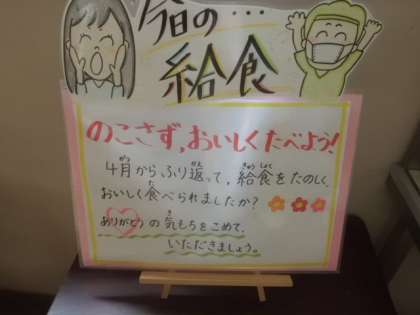 今日の…
給食
のこさず,おいしくたべよう!
4月から,ふり返って,給食をたのしく,
おいしく食べられましたか?
ありがとうの気もちをこめて,
いただきましょう。